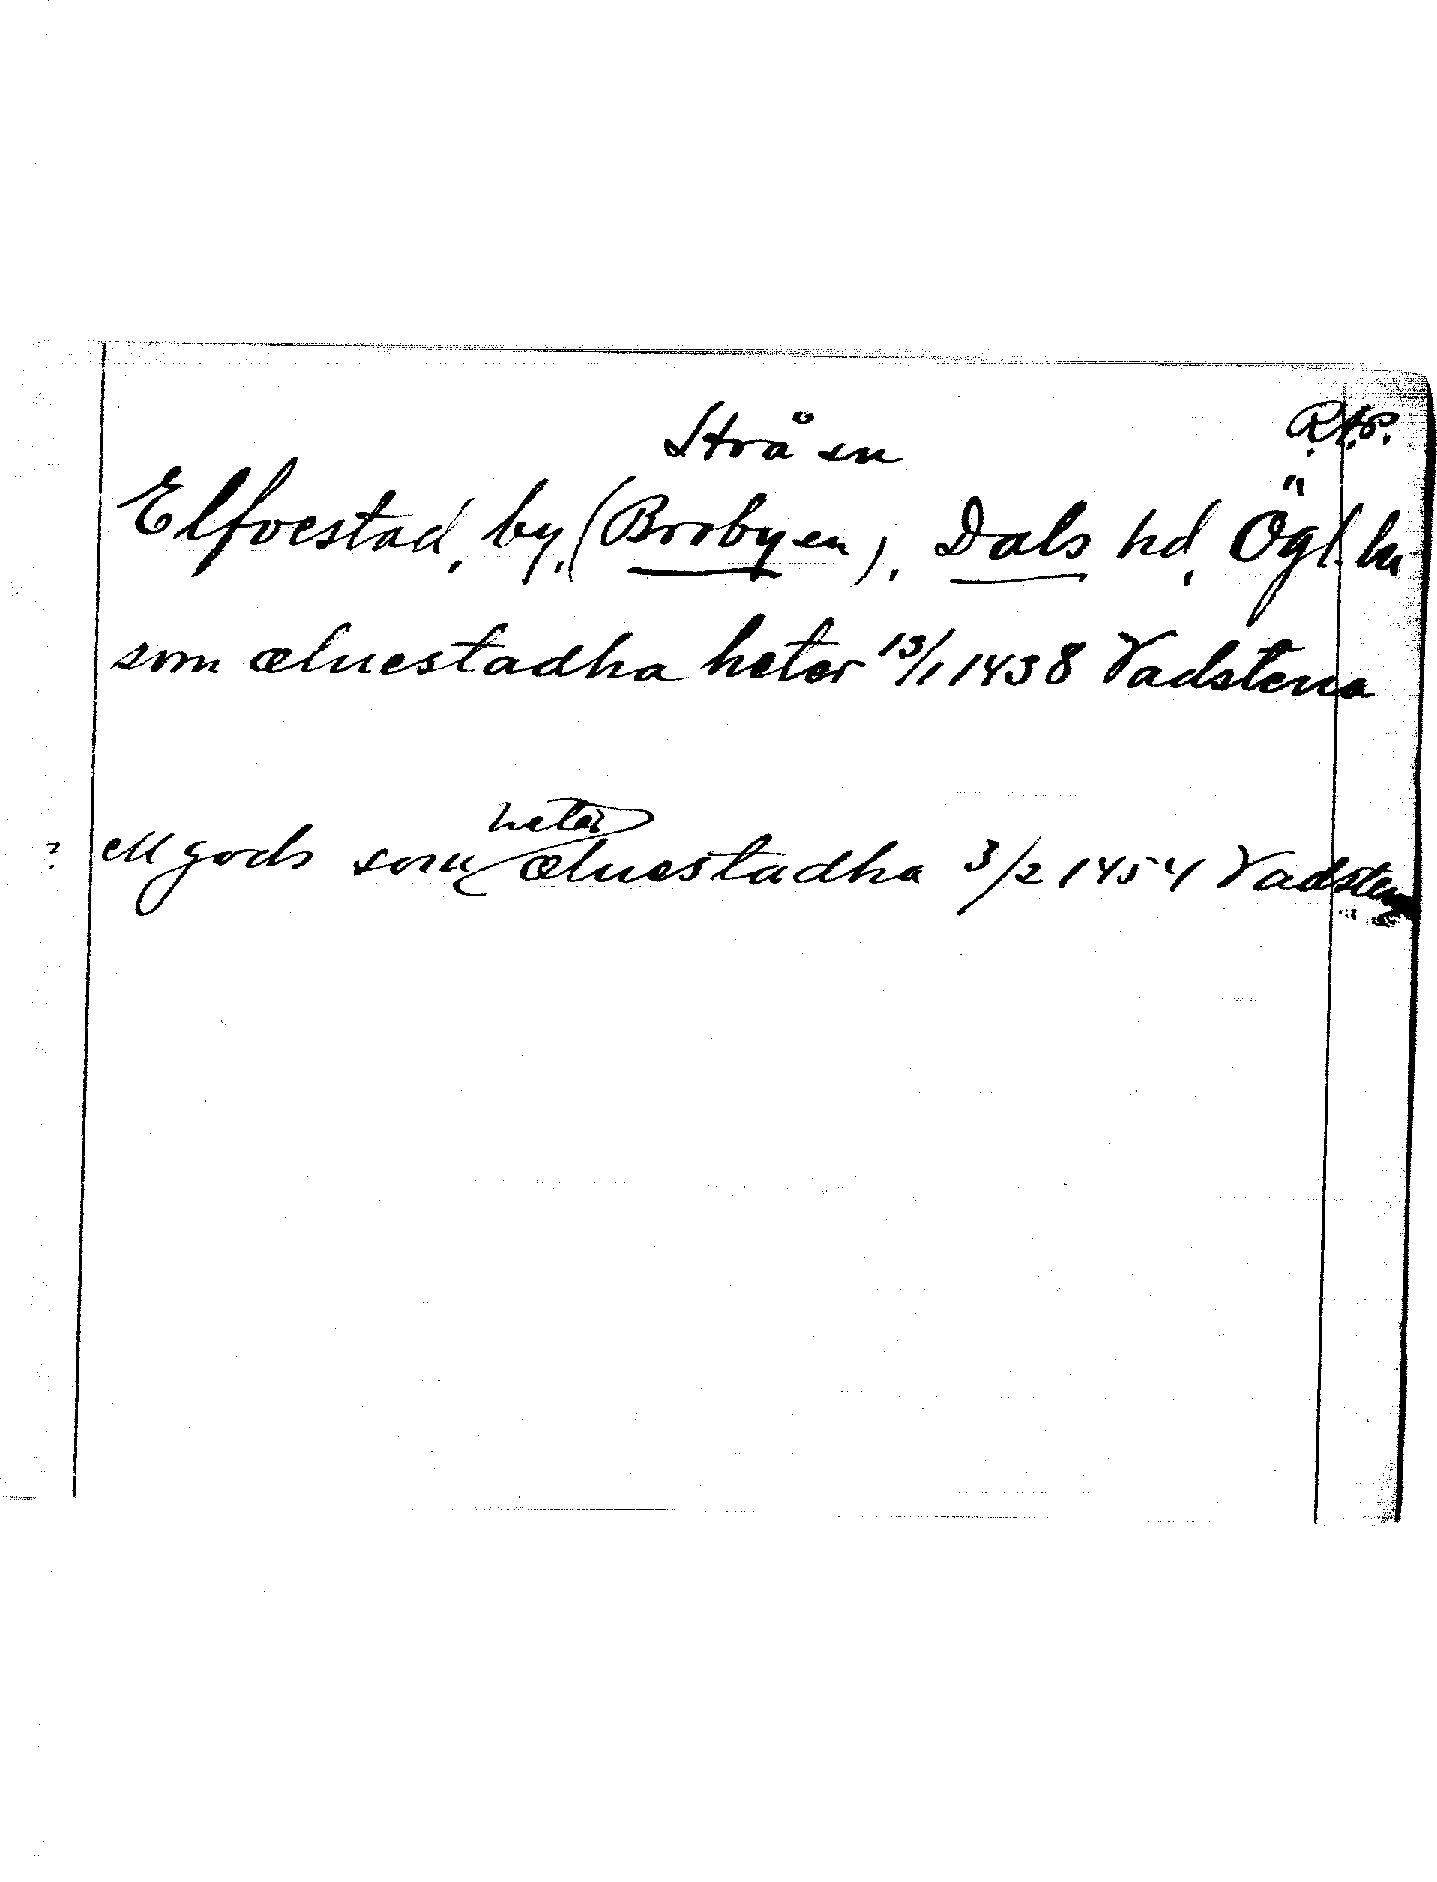 Strå sn R.A.P.
Elfvestad, by, (Broby sn), Dals hd, Ögl. ln
som æluestadha heter 13/1 1438 Vadstena
? ett gods som heter æluestadha 3/2 1454 Vadstena